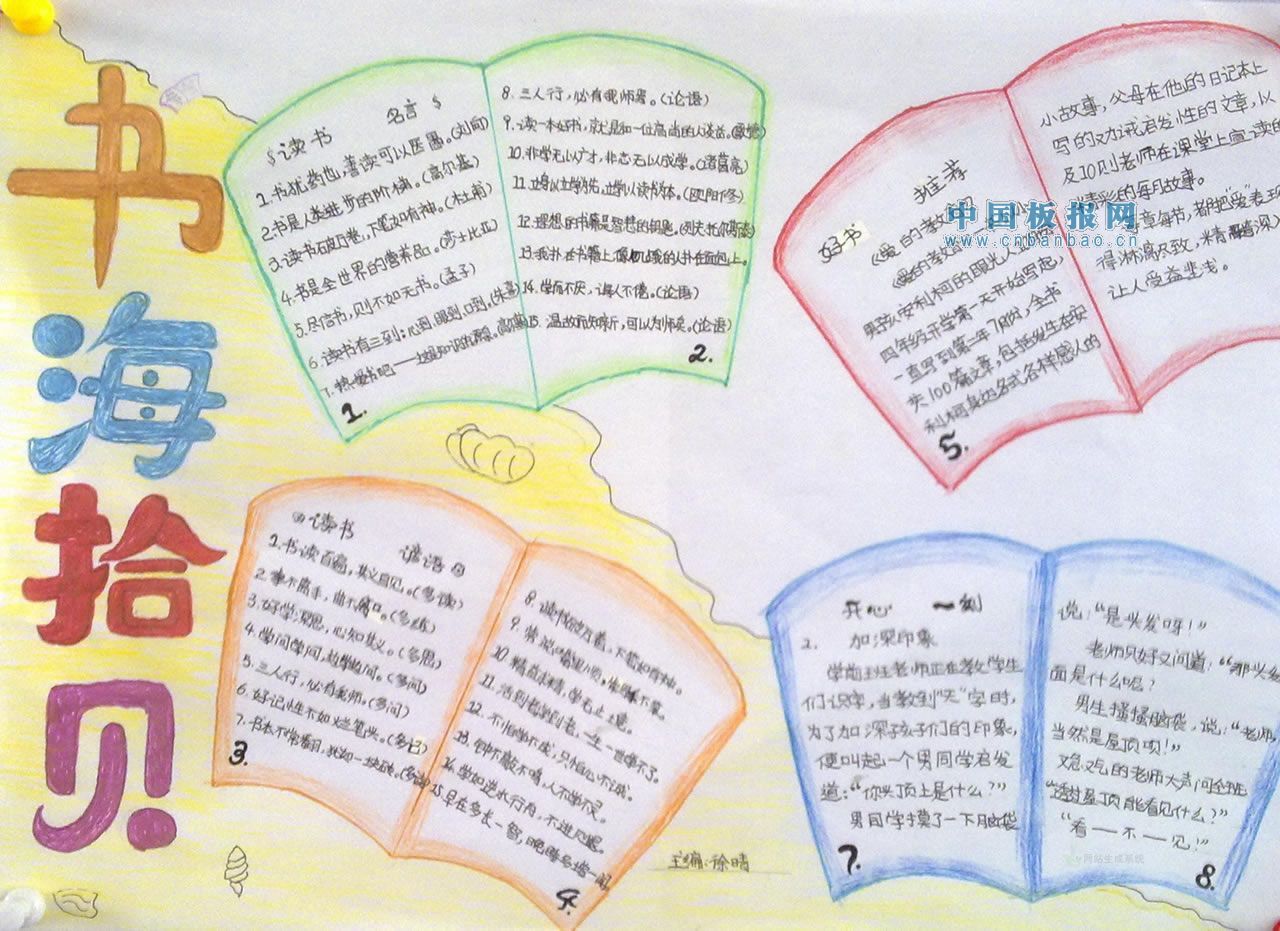 书海拾贝
读书 名言
1.书犹药也，善读可以医愚。(刘向)
2.书是人类进步的阶梯。(高尔基)
3.读书破万卷，下笔如有神。(杜甫)
4.书是全世界的营养品。(莎士比亚)
5.尽信书，则不如无书。(孟子)
6.读书有三到：心到，眼到，口到。(朱熹)
7.热爱书吧——这是知识的源泉。(高尔基)
1.
8.三人行，必有我师焉。(论语)
9.读一本好书，就是和一位高尚的人谈话。(歌德)
10.非学无以广才，非志无以成学。(诸葛亮)
11.立身以立学为先，立学以读书为本。(欧阳修)
12.理想的书籍是智慧的钥匙。(列夫托尔斯泰)
13.我扑在书籍上，像饥饿的人扑在面包上。
14.学而不厌，诲人不倦。(论语)
15.温故而知新，可以为师矣。(论语)
2.
读书 谚语
1.书读百遍，其义自见。(多读)
2.拳不离手，曲不离口。(多练)
3.好学深思，心知其义。(多思)
4.学问学问，边学边问。(多问)
5.三人行，必有我师。(多问)
6.好记性不如烂笔头。(多记)
7.书本不常翻目，犹如一块砖。
3.
8.读书破万卷，下笔如有神。
9.常说口里顺，常做手不笨。
10.精益求精，学无止境。
11.活到老学到老，一生一世学不了。
12.不怕学不成，只怕心不诚。
13.钟不敲不鸣，人不学不灵。
14.学如逆水行舟，不进则退。
15.早在多长一智，晚
4.
主编：徐晴
好书 推荐
《爱的教育》
男孩安利柯的眼光从他
四年级开学第一天开始写起，
一直写到第二年7月份，全书
共100篇文章，包括发生在安
利柯身边各式各样感人的
5.
小故事，父母在他的日记本上
写的劝诫启发性的文章，以
及10则老师在课堂上宣读的
精彩的每月故事。
每章每节，都把“爱”表现
得淋漓尽致，精髓深入
让人受益非浅。
中国板报网
www.cnbanbao.cn
开心 一刻
2. 加深印象
学前班老师正在教学生
们识字，当教到“天”字时，
为了加深孩子们的印象，
便叫起一个男同学启发
道：“你头顶上是什么？”
男同学摸了一下脑袋
7.
说：“是头发呀！”
老师只好又问道：“那头发
面是什么呢？
男生搔搔脑袋，说：“老师，
当然是屋顶呗！”
又急又气的老师大声问全班
“透过屋顶能看见什么？”
“看一不一见！”
网站生成系统
8.